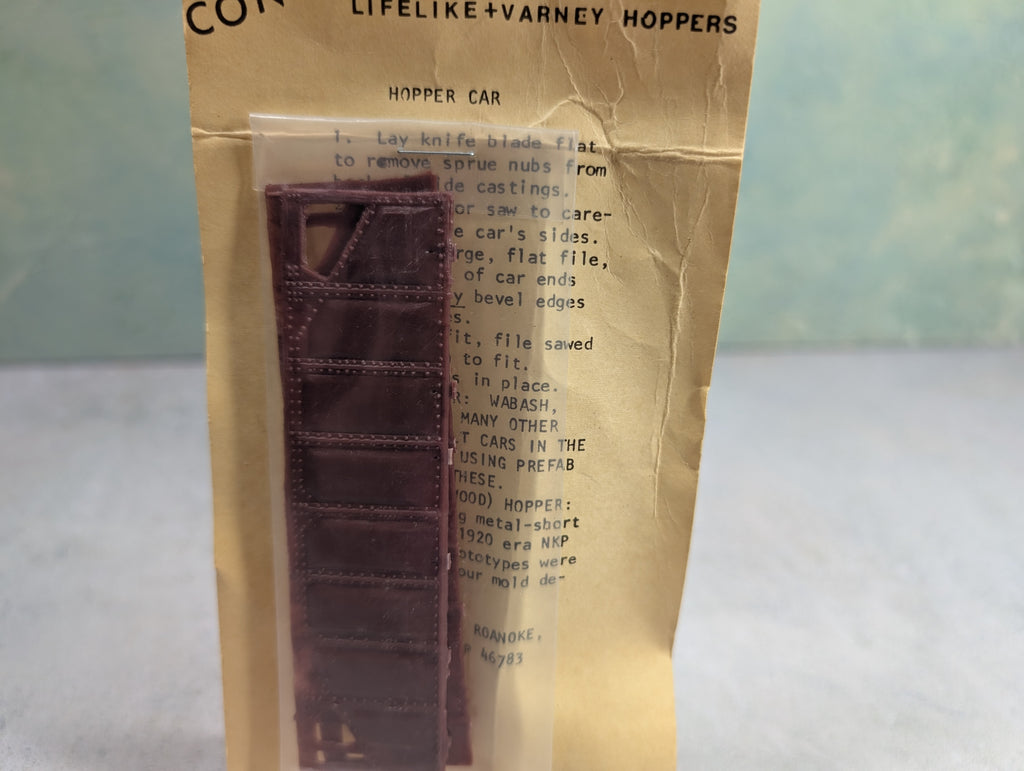 CON
LIFELIKE+VARNEY HOPPERS
HOPPER CAR
1. Lay knife blade flat
to remove sprue nubs from
de castings.
or saw to care-
e car's sides.
rge, flat file,
of car ends
y bevel edges
s.
fit, file sawed
to fit.
s in place.
R: WABASH,
MANY OTHER
T CARS IN THE
USING PREFAB
THESE.
OOD) HOPPER:
g metal-short
1920 era NKP
ototypes were
our mold de-
ROANOKE,
46783